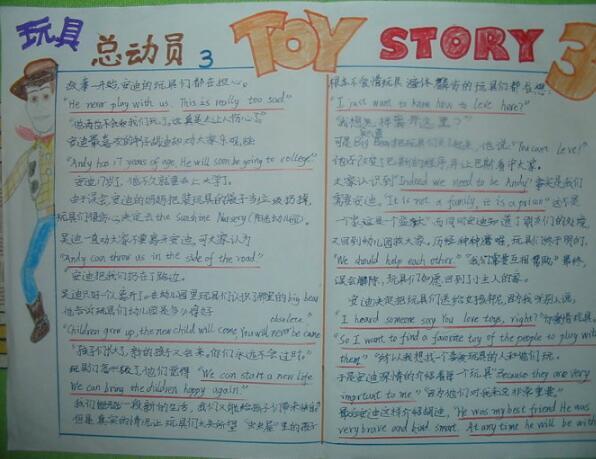 玩具
总动员 3
TOY STORY 3
故事一开始,安迪的玩具们都在担心。
"He never play with us. This is really too sad"
"他再也不会和我们玩了,这真是太让人伤心了"
安迪最喜欢的
"Andy has 17 years of age. He will soon be going to college."
安迪17岁了,他不久就要去上大学了。
由于误会,安迪的妈妈把装玩具的袋子当垃圾扔掉,
玩具们 决定去the Sunshine Nursery(阳光幼儿园)。
胡迪一直劝大家不要离开安迪,可大家认为
"Andy can throw us in the side of the road"
安迪把我们扔在了路边。
胡迪只好一个人离开了。在幼儿园里玩具们认识了那里的big bear
他告诉玩具们幼儿园是多么得好
obsolete."
"Children grow up, the new child will come, You will never be came
"孩子们长大了,新的孩子又会来。你们永远不会过时。"
玩具们 他们觉得 "We can start a new life
We can bring the children happy again."
我们能 一段新的生活,我们又能给孩子们带来快乐"
但是真实的情况让玩具们大失所望 "虫虫屋"里的孩子
根本不会惜玩具 遍体鳞伤的玩具们都在想:
"I just want to know how to leve here?"
"我想怎样离开这里?"
可是Big Bear把玩具们 起来,他说"You can't leve!"
他 改变了巴斯的程序,并让巴斯看守大家。
大家认识到"Indeed we need to be Andy" 事实是我们
需要安迪。"It is not a family, it is a prison" 这不是
一个家这是一个监狱" 而同时胡迪知道了朋友们的处境
又回到幼儿园救大家。历经种种磨难,玩具们终于明白,
"We should help each other." "我们需要互相帮助" 最终,
误会解除,玩具们如愿回到了小主人的家。
安迪决定把玩具们送给女孩邦妮,
"I heard someone say You love toys, right?" 你爱惜玩具。
"So I want to find a favorite toy of the people to play with
them" "所以我想找一个喜爱玩具的人和他们玩。
于是安迪深情的介绍着每一个玩具 "Because they are very
important to me" "因为他们对我来说非常重要。"
最后安迪这样介绍胡迪,"He was my best friend He was
very brave and kind smart. At any time he will be with